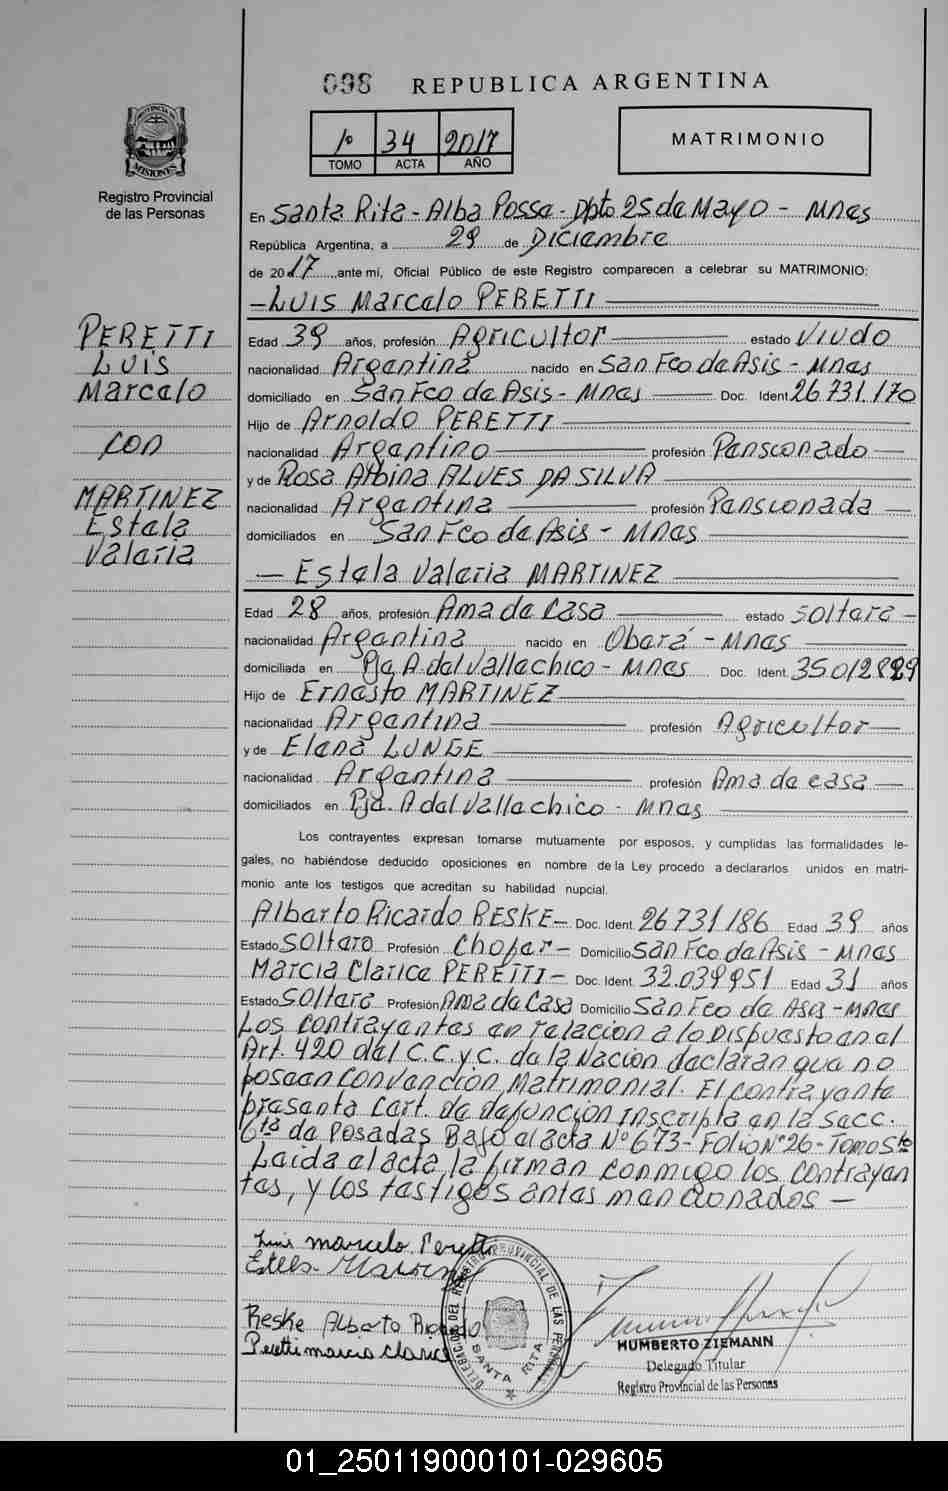 098 REPUBLICA ARGENTINA
1º 34 2017
TOMO ACTA AÑO
MATRIMONIO
PROVINCIA DE MISIONES
Registro Provincial
de las Personas
En Santa Rita - Alba Posse - Dpto 25 de Mayo - Mnes
República Argentina, a 29 de Diciembre
de 2017, ante mí, Oficial Público de este Registro comparecen a celebrar su MATRIMONIO:
- Luis Marcelo PERETTI
PERETTI
Luis
Marcelo
con
MARTINEZ
Estela
Valeria
Edad 39 años, profesión Agricultor estado Viudo
nacionalidad Argentina nacido en San Fco de Asis - Mnes
domiciliado en San Fco de Asis - Mnes Doc. Ident 26.731.170
Hijo de Arnoldo PERETTI
nacionalidad Argentino profesión Pensionado
y de Rosa Albina ALVES DA SILVA
nacionalidad Argentina profesión Pensionada
domiciliados en San Fco de Asis - Mnes
- Estela Valeria MARTINEZ
Edad 28 años, profesión Ama de Casa estado soltera -
nacionalidad Argentina nacido en Oberá - Mnes
domiciliada en Pje A. del Valle chico - Mnes Doc. Ident.
Hijo de Ernesto MARTINEZ
nacionalidad Argentina profesión Agricultor
y de Elena LUNGE
nacionalidad Argentina profesión Ama de casa
domiciliados en Pje. A del Valle chico - Mnes
Los contrayentes expresan tomarse mutuamente por esposos, y cumplidas las formalidades le-
gales, no habiéndose deducido oposiciones en nombre de la Ley procedo a declararlos unidos en matri-
monio ante los testigos que acreditan su habilidad nupcial.
Alberto Ricardo RESKE - Doc. Ident. 26731186 Edad 39 años
Estado soltero Profesión Chofer - Domicilio San Fco de Asis - Mnes
Marcia Clarice PERETTI - Doc. Ident. 32.039951 Edad 31 años
Estado soltera Profesión Ama de Casa Domicilio San Fco de Asis - Mnes
Los contrayentes en relacion a lo Dispuesto en el
Art. 420 del C.C.y C. de la Nacion declaran que no
poseen convencion Matrimonial. El contrayente
presenta Cert. de defuncion inscripta en la secc.
6ta de Posadas Bajo el acta Nº 673 - Folio Nº 26 - Tomo 5to
Leida el acta la firman conmigo los contrayen
tes, y los testigos antes mencionados -
Luis marcelo Peretti
Estela Martinez
Reske Alberto Ricardo
Peretti marcia clarice
DELEGACION DEL REGISTRO PROVINCIAL DE LAS PERSONAS
SANTA RITA
HUMBERTO ZIEMANN
Delegado Titular
Registro Provincial de las Personas
01_250119000101-029605